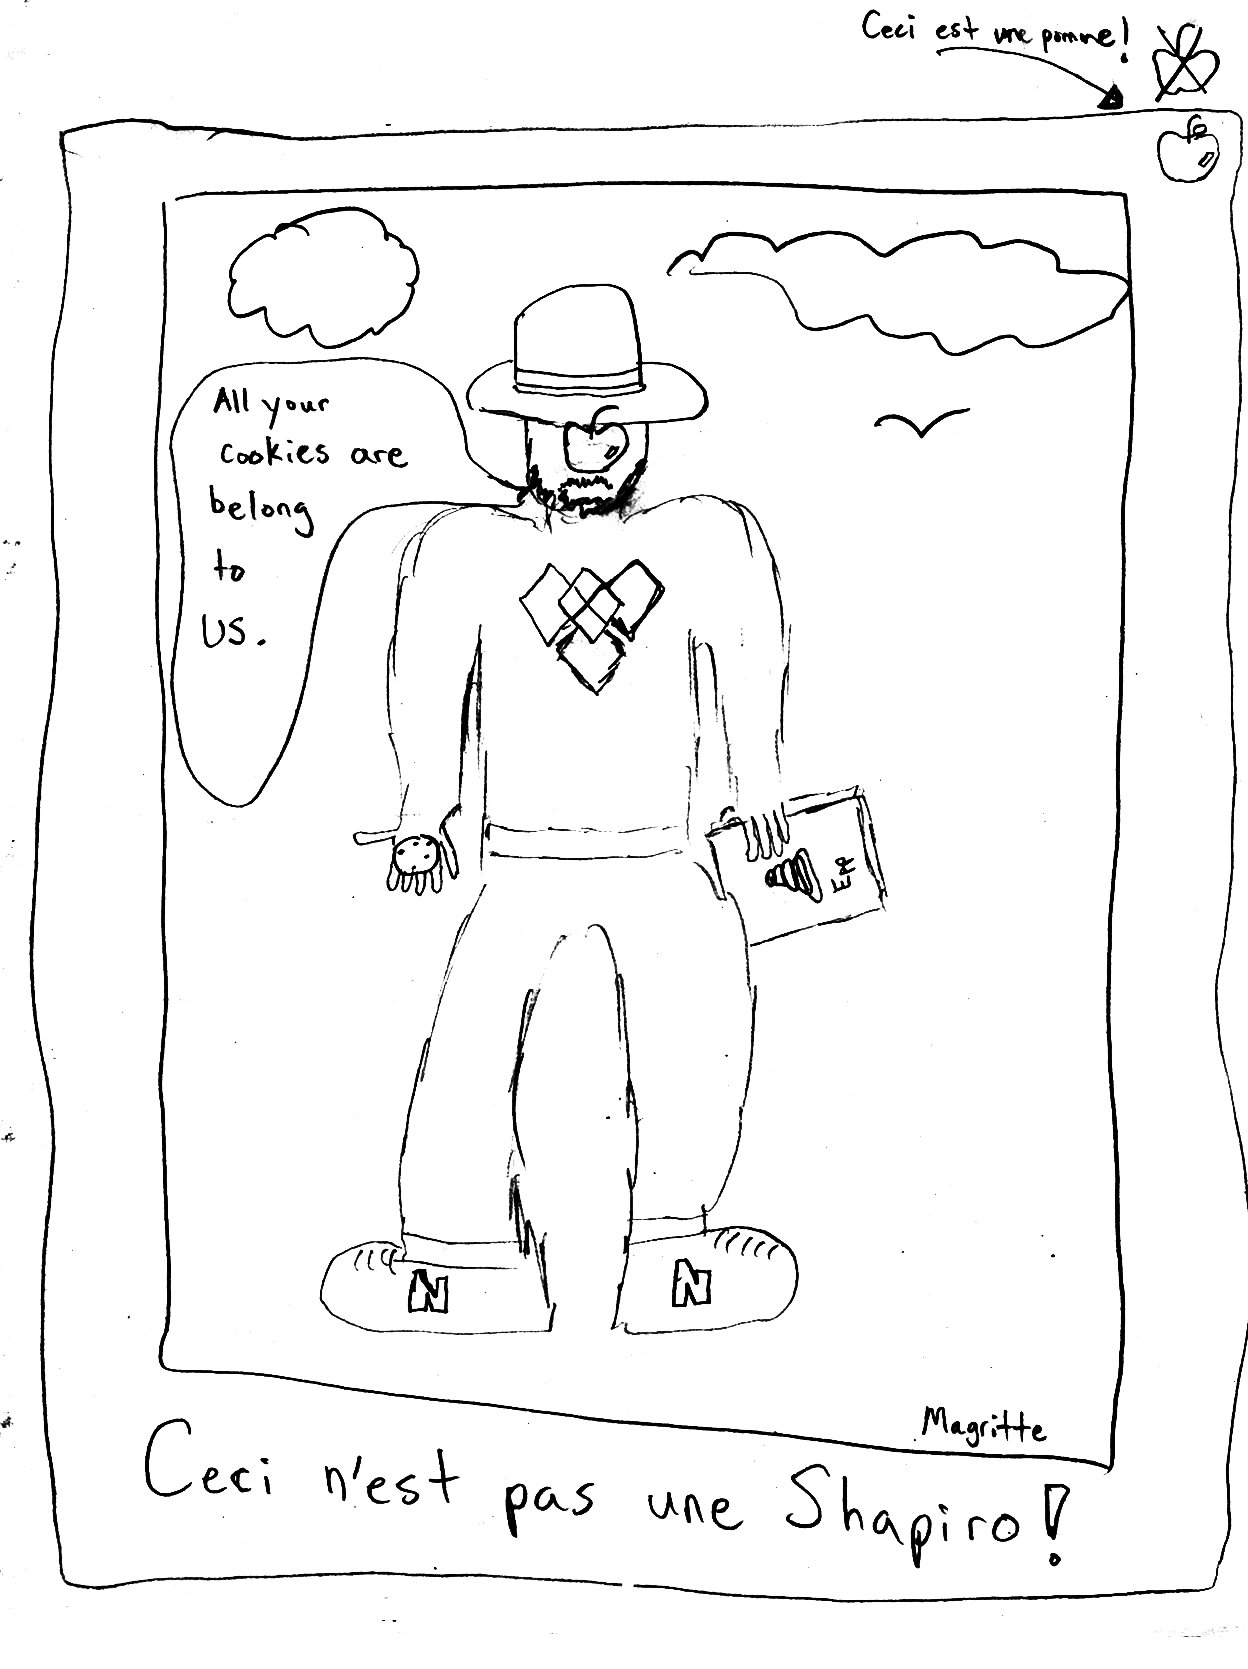 Ceci est une pomme!
All your
cookies are
belong
to
us.
EM
N
N
Magritte
Ceci n'est pas une Shapiro!